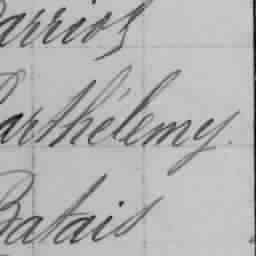 Barrios
Barthélemy.
Batais